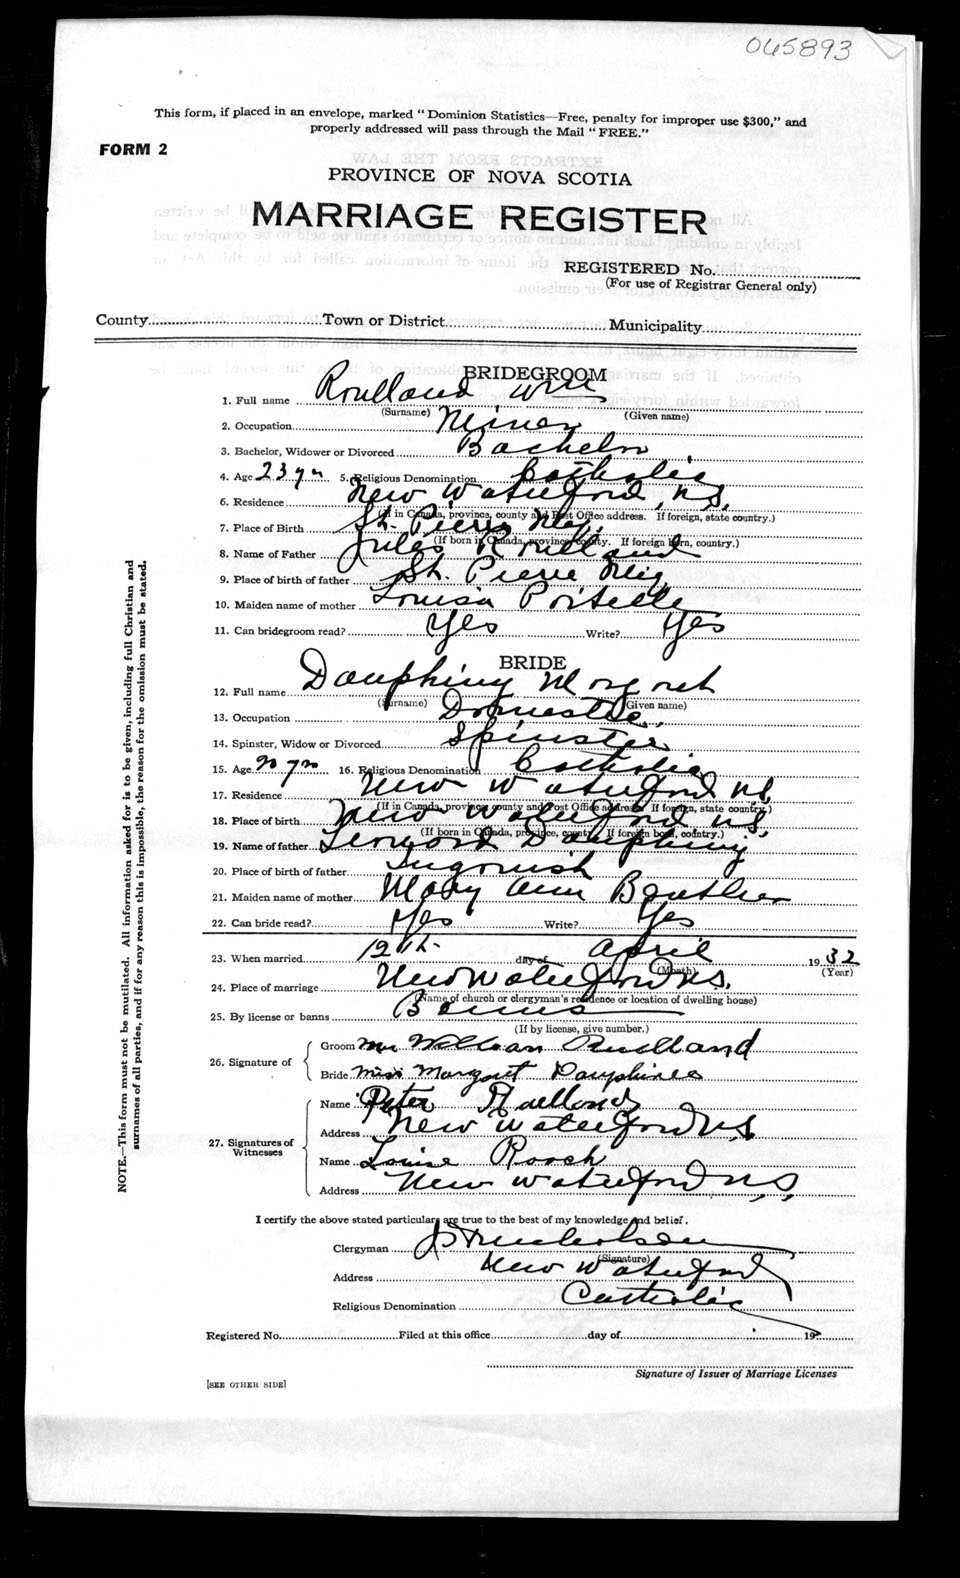 065893
This form, if placed in an envelope, marked "Dominion Statistics—Free, penalty for improper use $300," and
properly addressed will pass through the Mail "FREE."
FORM 2
PROVINCE OF NOVA SCOTIA
MARRIAGE REGISTER
REGISTERED No.
(For use of Registrar General only)
County Town or District Municipality
BRIDEGROOM
1. Full name Roulland Wm
(Surname) (Given name)
2. Occupation Miner
3. Bachelor, Widower or Divorced Bachelor
4. Age 23 yrs 5. Religious Denomination Catholic
6. Residence New Waterford, N.S.
(If in Canada, province, county and Post Office address. If foreign, state country.)
7. Place of Birth St. Pierre Miq.
(If born in Canada, province, county. If foreign born, country.)
8. Name of Father Jules Roulland
9. Place of birth of father St. Pierre Miq
10. Maiden name of mother Louisa
11. Can bridegroom read? Yes Write? Yes
BRIDE
12. Full name Dauphiny Margaret
(Surname) (Given name)
13. Occupation Domestic
14. Spinster, Widow or Divorced Spinster
15. Age 16. Religious Denomination Catholic
17. Residence New Waterford N.S.
(If in Canada, province, county and Post Office address. If foreign, state country.)
18. Place of birth New Waterford N.S.
(If born in Canada, province, county. If foreign born, country.)
19. Name of father Dauphiny
20. Place of birth of father Ingonish
21. Maiden name of mother Mary Ann
22. Can bride read? Yes Write? Yes
23. When married 12th day of April 1932
(Month) (Year)
24. Place of marriage New Waterford N.S.
(Name of church or clergyman's residence or location of dwelling house)
25. By license or banns Banns
(If by license, give number.)
26. Signature of
Groom Mr William Rulland
Bride Miss Margaret Dauphinee
27. Signatures of Witnesses
Name Peter
Address New Waterford N.S.
Name Louise Roach
Address New Waterford N.S.
I certify the above stated particulars are true to the best of my knowledge and belief.
Clergyman
(Signature)
Address New Waterford
Religious Denomination Catholic
Registered No. Filed at this office day of 19
Signature of Issuer of Marriage Licenses
[SEE OTHER SIDE]
NOTE.—This form must not be mutilated. All information asked for is to be given, including full Christian and
surnames of all parties, and if for any reason this is impossible, the reason for the omission must be stated.